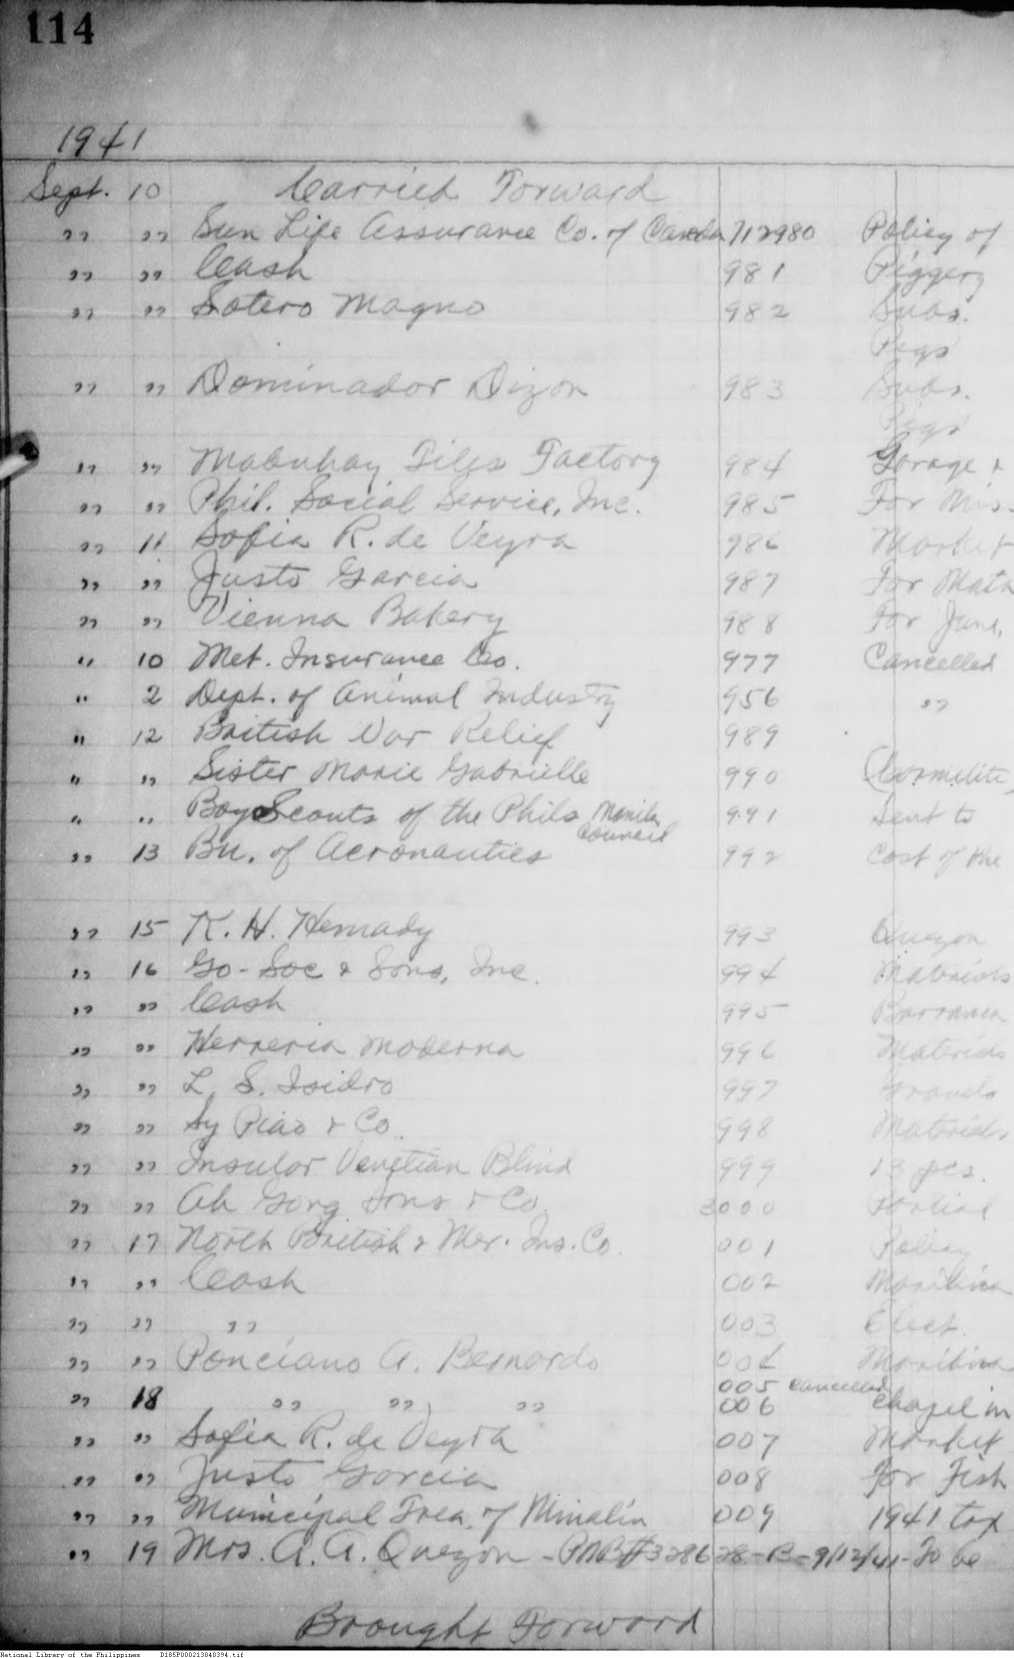 114
1941
Sept. 10 Carried Forward
" " Sun Life Assurance Co. of Canada 712980 Policy of
" " Cash 981 Piggery
" " Sotero Magno 982 Subs.
Pigs
" " Dominador Dizon 983 Subs.
Pigs
" " Mabuhay Tiles Factory 984 Garage &
" " Phil. Social Service, Inc. 985 For Mis.
" 11 Sofia R. de Veyra 986 Market
" " Justo Garcia 987 For
" " Vienna Bakery 988 For June,
" 10 Met. Insurance Co. 977 Cancelled
" 2 Dept. of Animal Industry 956 "
" 12 British War Relief 989
" " Sister Marie Gabrielle 990 Carmelite,
" " Boy Scouts of the Phils Manila Council 991 Sent to
" 13 Bu. of Aeronautics 992 Cost of the
" 15 K. H. Hemady 993 Quezon
" 16 Go-Soc & Sons, Inc. 994 Materials
" " Cash 995
" " Herreria Moderna 996 Materials
" " L. S. Isidro 997 Gravels
" " Sy Piao & Co. 998 Materials
" " Insular Venetian Blind 999 13 pcs.
" " Ah Gong Sons & Co. 3000 Partial
" 17 North British & Mer. Ins. Co. 001 Policy
" " Cash 002 Marikina
" " " 003 Elect.
" " Ponciano A. Bernardo 004 Marikina
005 Cancelled
" 18 " " " 006 Chapel in
" " Sofia R. de Veyra 007 Market
" " Justo Garcia 008 For Fish
" " Municipal Trea. of Minalin 009 1941 tax
" 19 Mrs. A. A. Quezon - PNB #328628-B-9/12/41-To be
Brought Forward
National Library of the Philippines D185P000213040394.tif